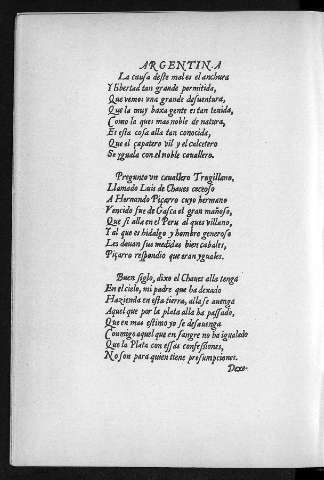 ARGENTINA
La causa deste mal es el anchura
Y libertad tan grande permitida,
Que vemos vna grande desuentura,
Que la muy baxa gente es tan tenida,
Como la ques mas noble de natura,
Es esta cosa alla tan conocida,
Que el çapatero vil y el calcetero
Se yguala con el noble cauallero.
Pregunto vn cauallero Trugillano,
Llamado Luis de Chaues ceceoso
A Hernando Piçarro cuyo hermano
Vencido fue de Gasca el gran mañoso,
Que si alla en el Peru al ques villano,
Y al que es hidalgo y hombre generoso
Les dauan sus medidas bien cabales,
Piçarro respondio que eran yguales.
Buen siglo, dixo el Chaues alla tenga
En el cielo, mi padre que ha dexado
Hazienda en esta tierra, alla se auenga
Aquel que por la plata alla ha passado,
Que en mas estimo yo se desauenga
Conmigo aquel que en sangre no ha igualado
Que la Plata con essas confessiones,
No son para quien tiene presumpciones.
Dexo-